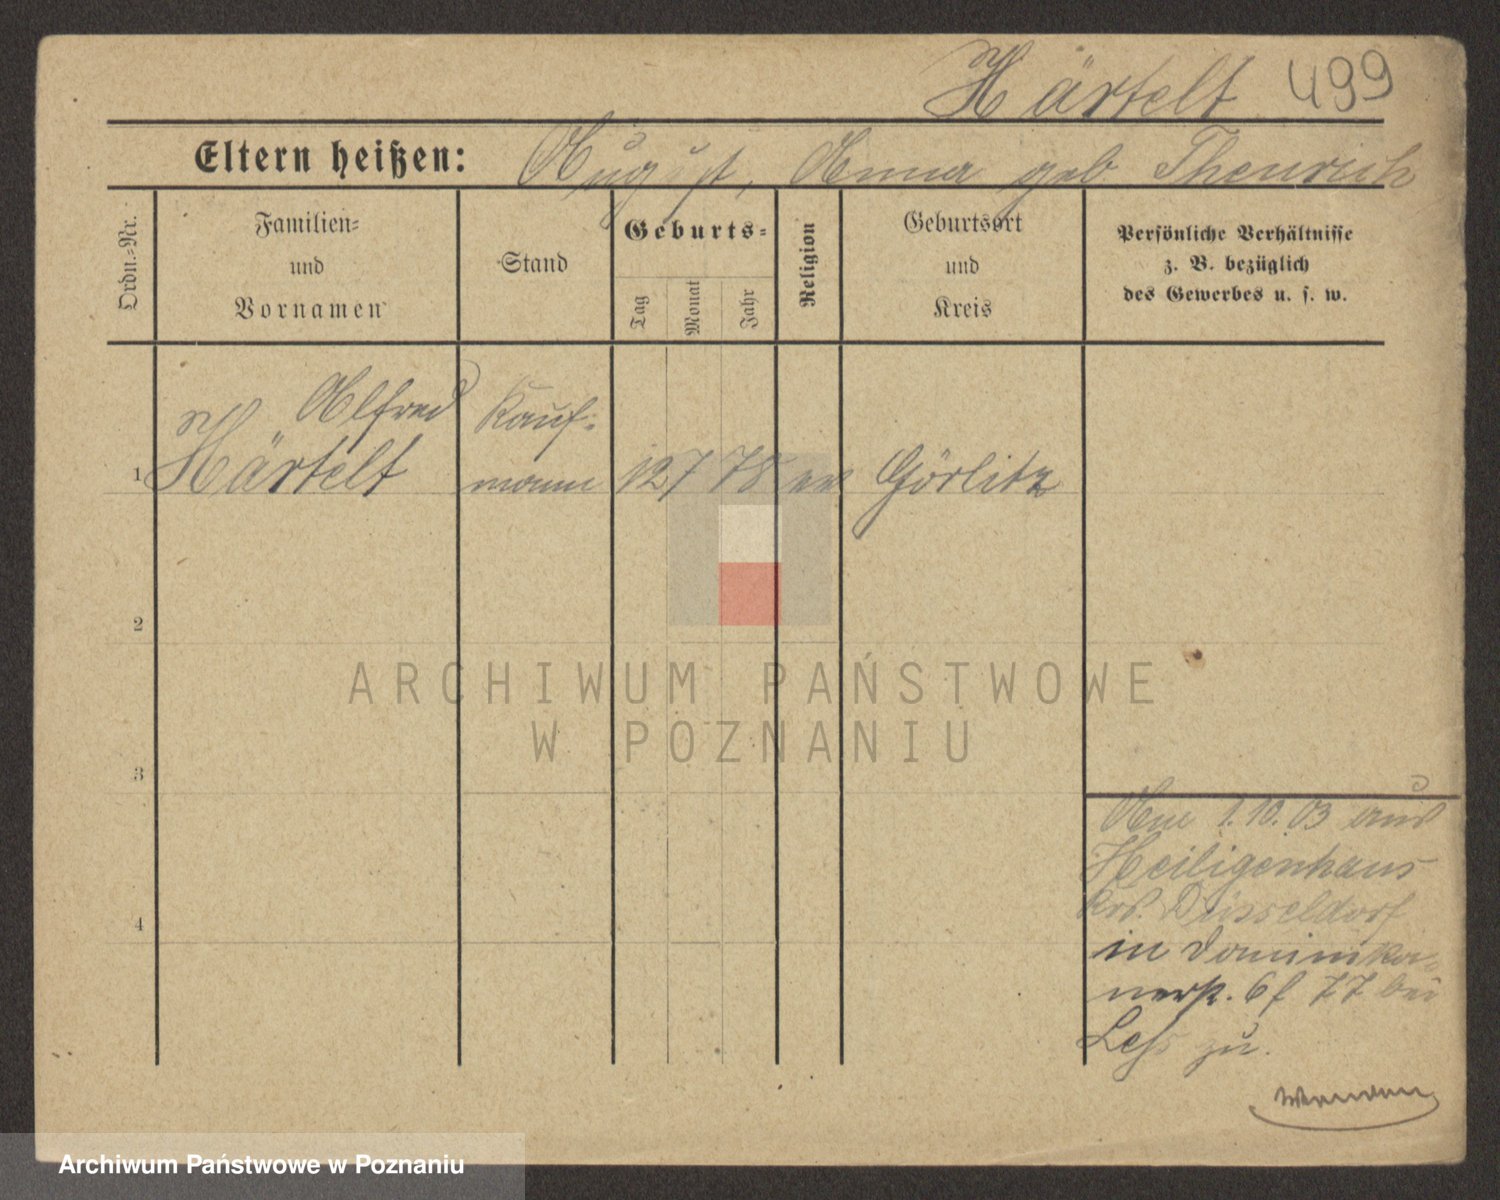 Härtelt 499
Eltern heißen: August, Anna geb Thenrich
Ordn.=Nr.
Familien=
und
Vornamen
Stand
Geburts=
Tag
Monat
Jahr
Religion
Geburtsort
und
Kreis
Persönliche Verhältnisse
z. B. bezüglich
des Gewerbes u. s. w.
Alfred Kauf-
1 Härtelt mann 12 7 78 ev Görlitz
2
ARCHIWUM PAŃSTWOWE
W POZNANIU
3
Am 1.10.03 aus
Heiligenhaus
Krs. Düsseldorf
4
in Dominika-
nerst. 6 f 77 bei
zu.
Wenden
Archiwum Państwowe w Poznaniu